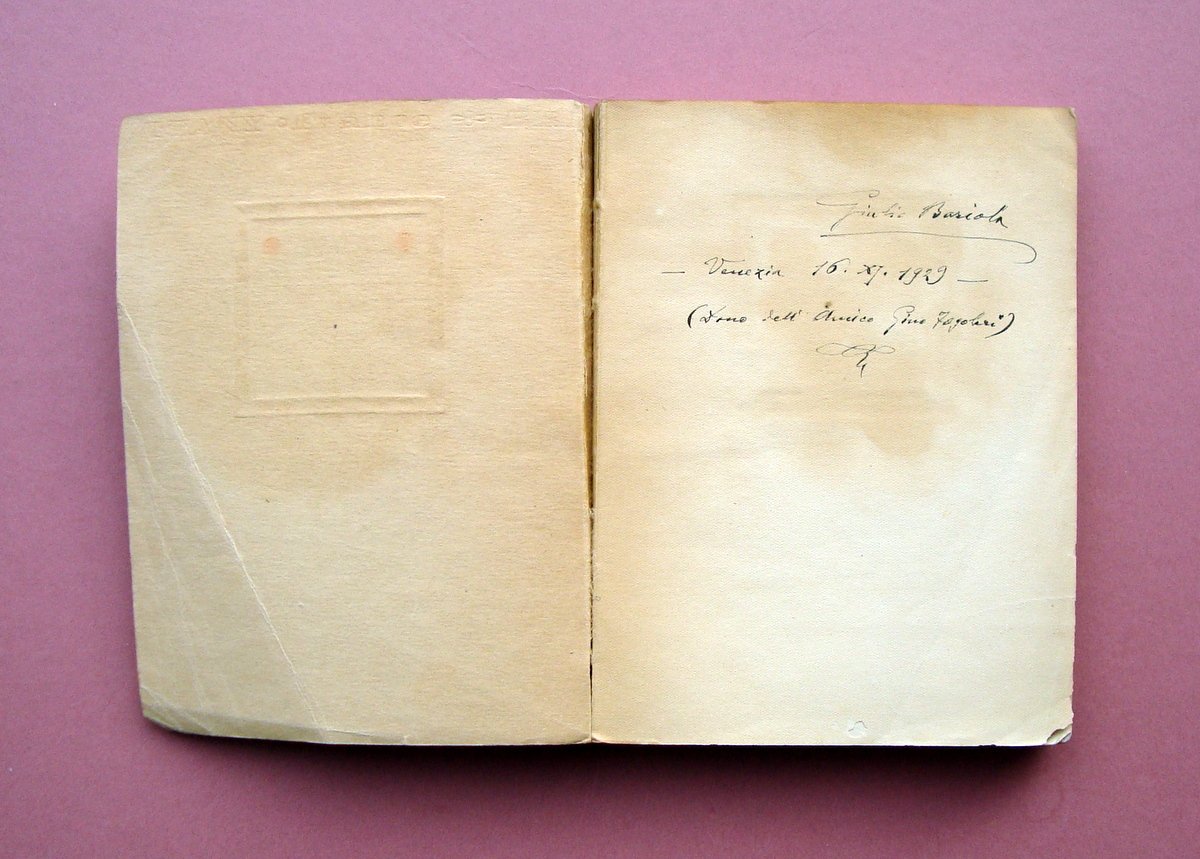 Giulio Bariola
— Venezia 16. XI. 1929 —
(Dono dell'Amico Gino Fogolari)